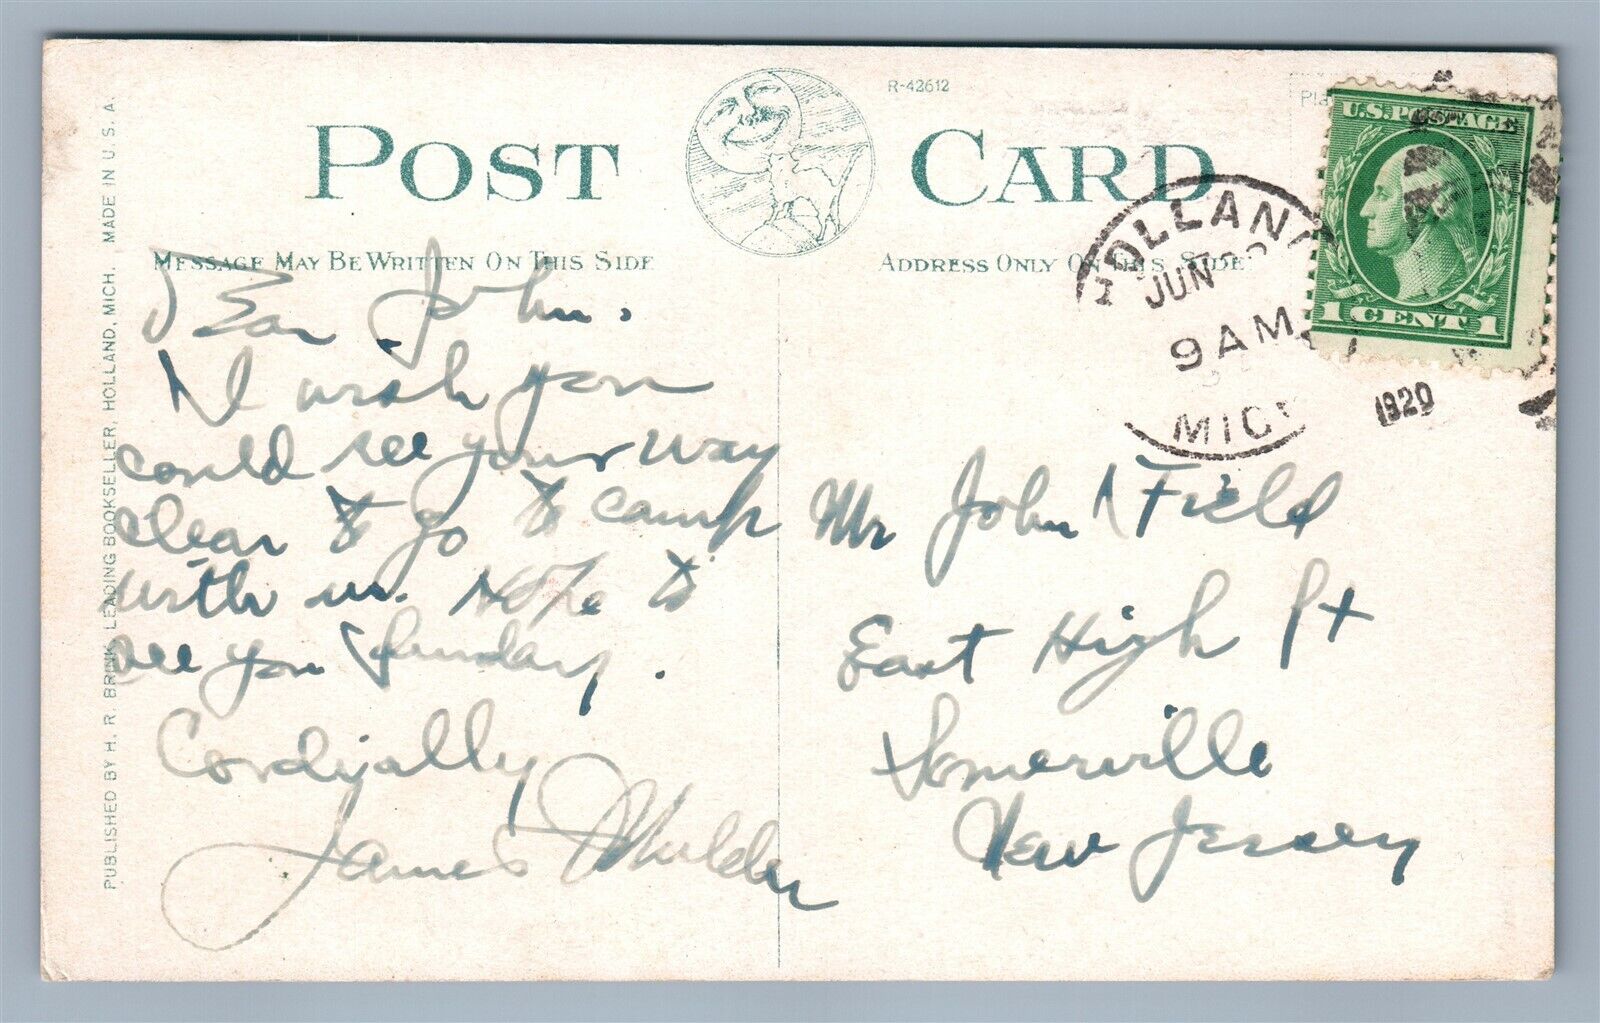 POST CARD
R-42612
MESSAGE MAY BE WRITTEN ON THIS SIDE
ADDRESS ONLY ON THIS SIDE
PUBLISHED BY H. R. BRINK, LEADING BOOKSELLER, HOLLAND, MICH. MADE IN U.S.A.
Pla
U.S. POSTAGE
1 CENT 1
HOLLAND
JUN
9 AM
MICH
1920
Dear John.
I wish you
could see your way
clear to go to camp
with us. Hope to
see you Sunday.
Cordially
James Mulder
Mr John Field
East High St
Somerville
New Jersey